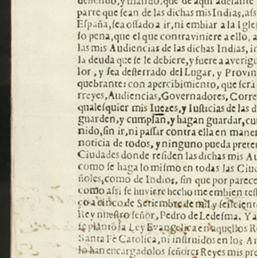 defendo, y mando, que de aqui adelante
parte que sean de las dichas mis Indias, ass
España, sea ossado a ir, ni entrar a la Igle
so pena, que el que contraviniere a ello, a
las mis Audiencias de las dichas Indias, in
la deuda que se le debiere, y fuere a averigu
lor, y sea desterrado del Lugar, y Provin
quebrante: con apercibimiento, que será
rreyes, Audiencias, Governadores, Corre
qualesquier mis Iuezes, y Iusticias de las d
guarden, y cumplan, y hagan guardar, cu
nido, sin ir, ni passar contra ella en maner
noticia de todos, y ninguno pueda prete
Ciudades donde residen las dichas mis Au
como se haga lo mismo en todas las Ciu
ñoles, como de Indios, sin que por parece
como assi se huviere hecho me embien tes
a cinco de Setiembre de mil y seiscient
Rey nuestro señor, Pedro de Ledesma. Y
se plantò la Ley Evangelica en aquellos Re
Santa Fè Catolica, ni instruidos en los Ar
lo han encargado los señores Reyes mis pr